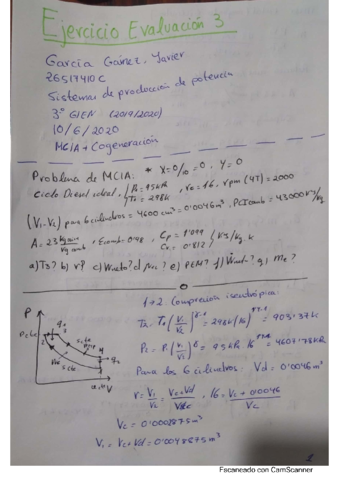 Ejercicio Evaluación 3
García Gámez, Javier
26517410C
Sistemas de producción de potencia
3º GIEN (2019/2020)
10/6/2020
MCIA + Cogeneración
Problema de MCIA: * X=0/10=0, Y=0
Ciclo Diesel ideal, P₁=95kPa, T₁=298k, r=16, rpm (4T)=2000
(V₁-V₂) para 6 cilindros = 4600 cm³ = 0'0046 m³, PCIcomb=43000 kJ/kg
A=23 kg aire/kg comb, Ecomb=0.48, Cp=1'099 Cv=0'812 kJ/kg k
a) T3? b) r? c) Wneto? d) e) PEM? f) g) ?
1→2 Compresión isentrópica:
T₂ = T₁(V₁/V₂) = 298k(16) = 903,37k
P₂ = P₁(V₁/V₂) = 95kPa · 16 = 4607,78kPa
Para los 6 cilindros: Vd = 0'0046m³
r = V₁/V₂ = Vc+Vd/Vc, 16 = Vc+0.0046/Vc
V₁ = Vc+Vd
P
1
Escaneado con CamScanner